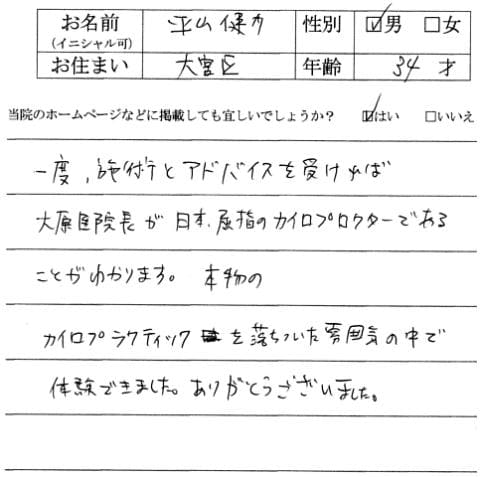 お名前 平山 健力 性別 ☑男 □女
(イニシャル可)
お住まい 大宮区 年齢 34 才
当院のホームページなどに掲載しても宜しいでしょうか? ☑はい □いいえ
一度、施術とアドバイスを受ければ
大原医院長が日本、屈指のカイロプロクターである
ことがわかります。 本物の
カイロプラクティック を落ちついた雰囲気の中で
体験できました。ありがとうございました。